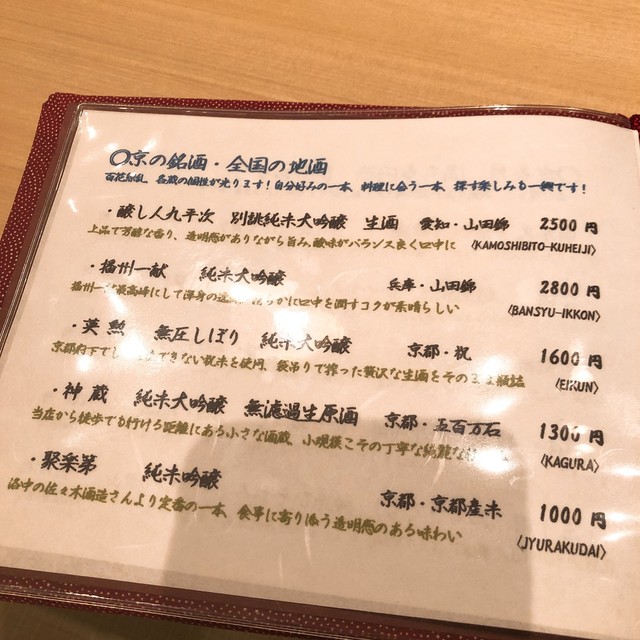 〇京の銘酒・全国の地酒
百花繚乱、各蔵の個性が光ります！自分好みの一本、料理に合う一本、探す楽しみも一興です！
・醸し人九平次 別誂純米大吟醸 生酒 愛知・山田錦 2500円
上品で芳醇な香り、透明感がありながら旨み、酸味がバランス良く口中に 〈KAMOSHIBITO-KUHEIJI〉
・播州一献 純米大吟醸 兵庫・山田錦 2800円
播州一 最高峰にして渾身の かに口中を潤すコクが素晴らしい 〈BANSYU-IKKON〉
・英勲 無圧しぼり 純米大吟醸 京都・祝 1600円
京都府下でし できない祝米を使用、袋吊りで搾った贅沢な生酒をそのまま瓶詰 〈EIKUN〉
・神蔵 純米大吟醸 無濾過生原酒 京都・五百万石 1300円
当店から徒歩でも行ける距離にある小さな酒蔵、小規模こその丁寧な綺麗な 〈KAGURA〉
・聚楽第 純米吟醸 京都・京都産米 1000円
洛中の佐々木酒造さんより定番の一本、食事に寄り添う透明感のある味わい 〈JYURAKUDAI〉